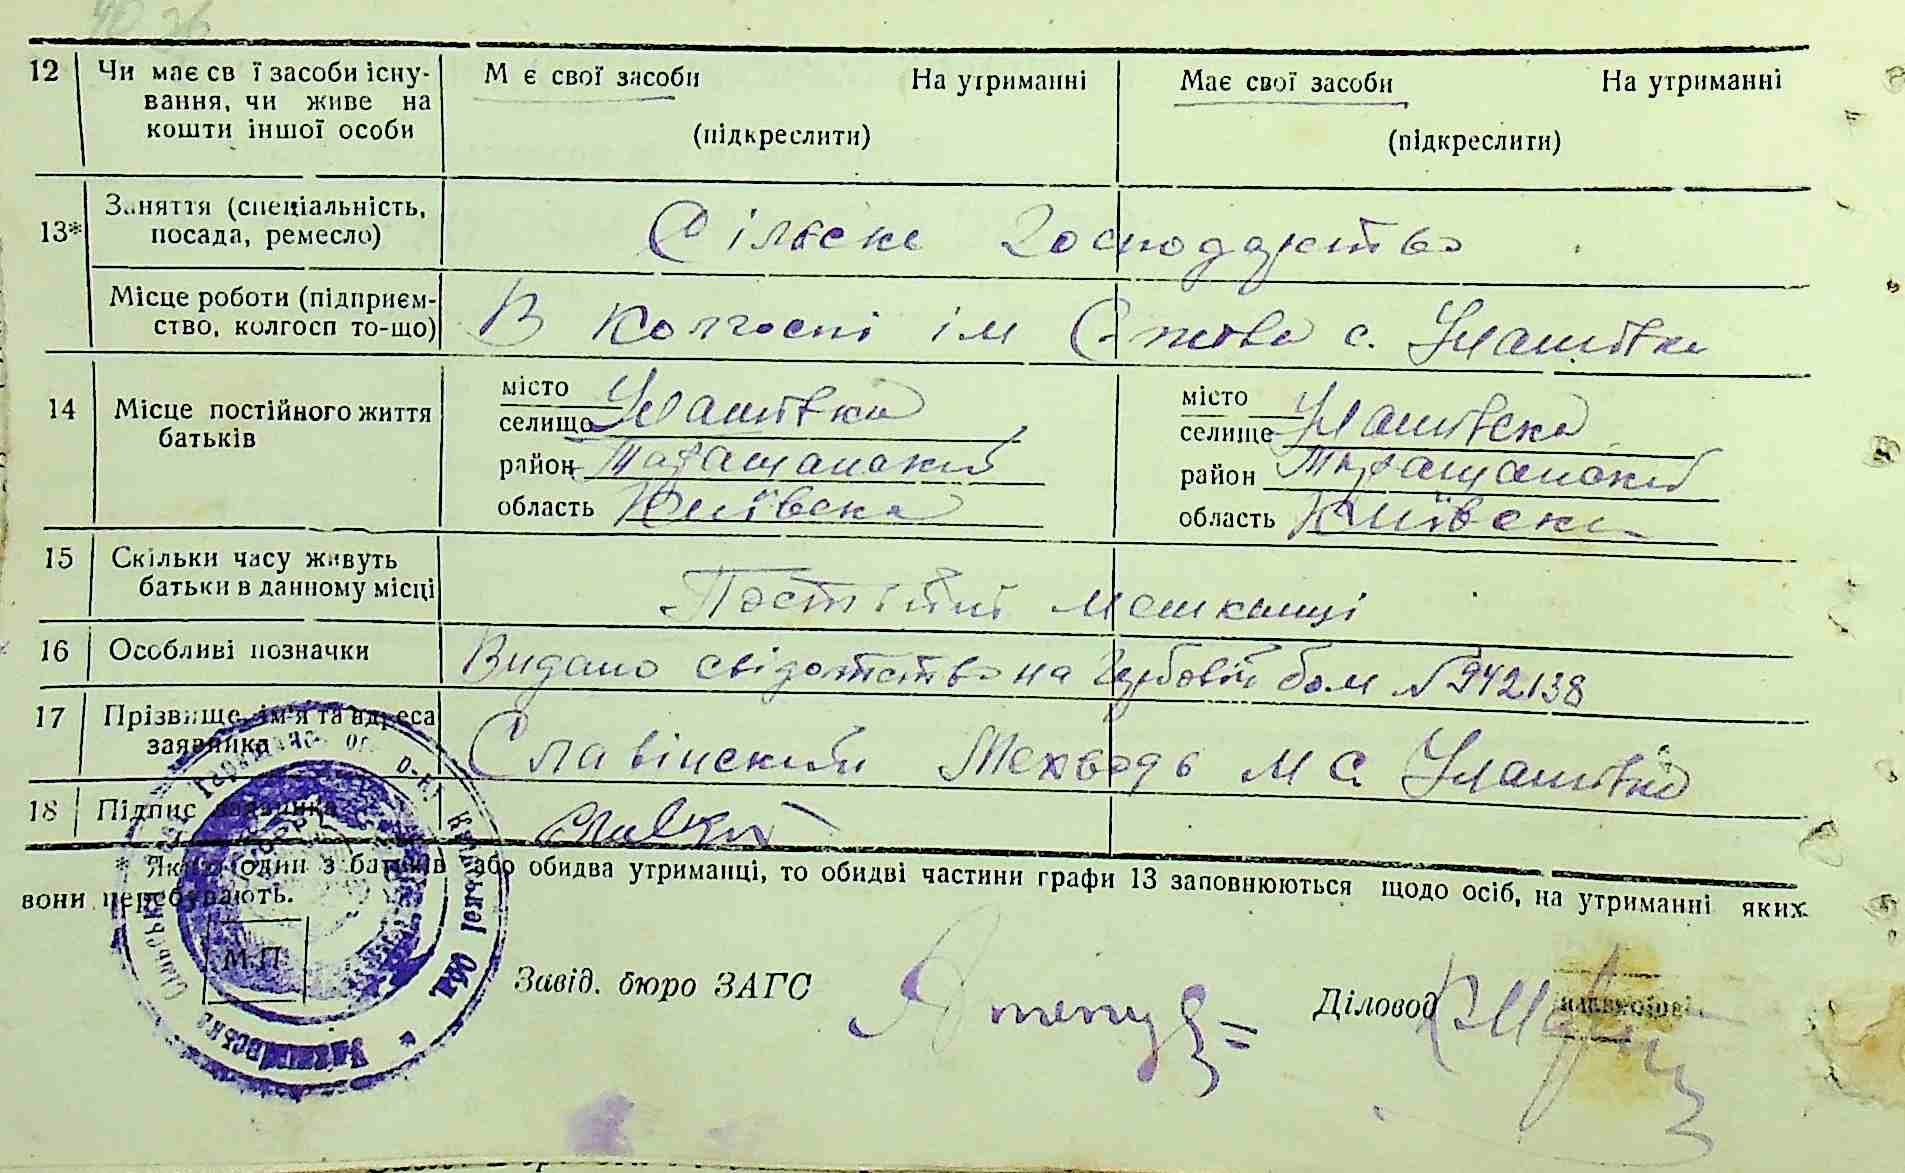 12 Чи має св ї засоби існу-
вання, чи живе на
кошти іншої особи
М є свої засоби На утриманні
(підкреслити)
Має свої засоби На утриманні
(підкреслити)
13* Заняття (спеціальність,
посада, ремесло)
Сільске господарство
Місце роботи (підприєм-
ство, колгосп то-що)
В колгоспі ім с. Улашівка
14 Місце постійного життя
батьків
місто
селищо Улашівка
район Таращанский
область Київска
місто
селище Улашівска
район Таращанский
область Київска
15 Скільки часу живуть
батьки в данному місці
Постійні мешканці
16 Особливі позначки
Видано свідотство на № 942138
17 Прізвище, ім'я та адреса
заявника
Славінский М с. Улашівка
18 Підпис заявника
* Якщо один з батьків або обидва утриманці, то обидві частини графи 13 заповнюються щодо осіб, на утриманні яких
вони перебувають.
М.П.
Завід. бюро ЗАГС
Діловод